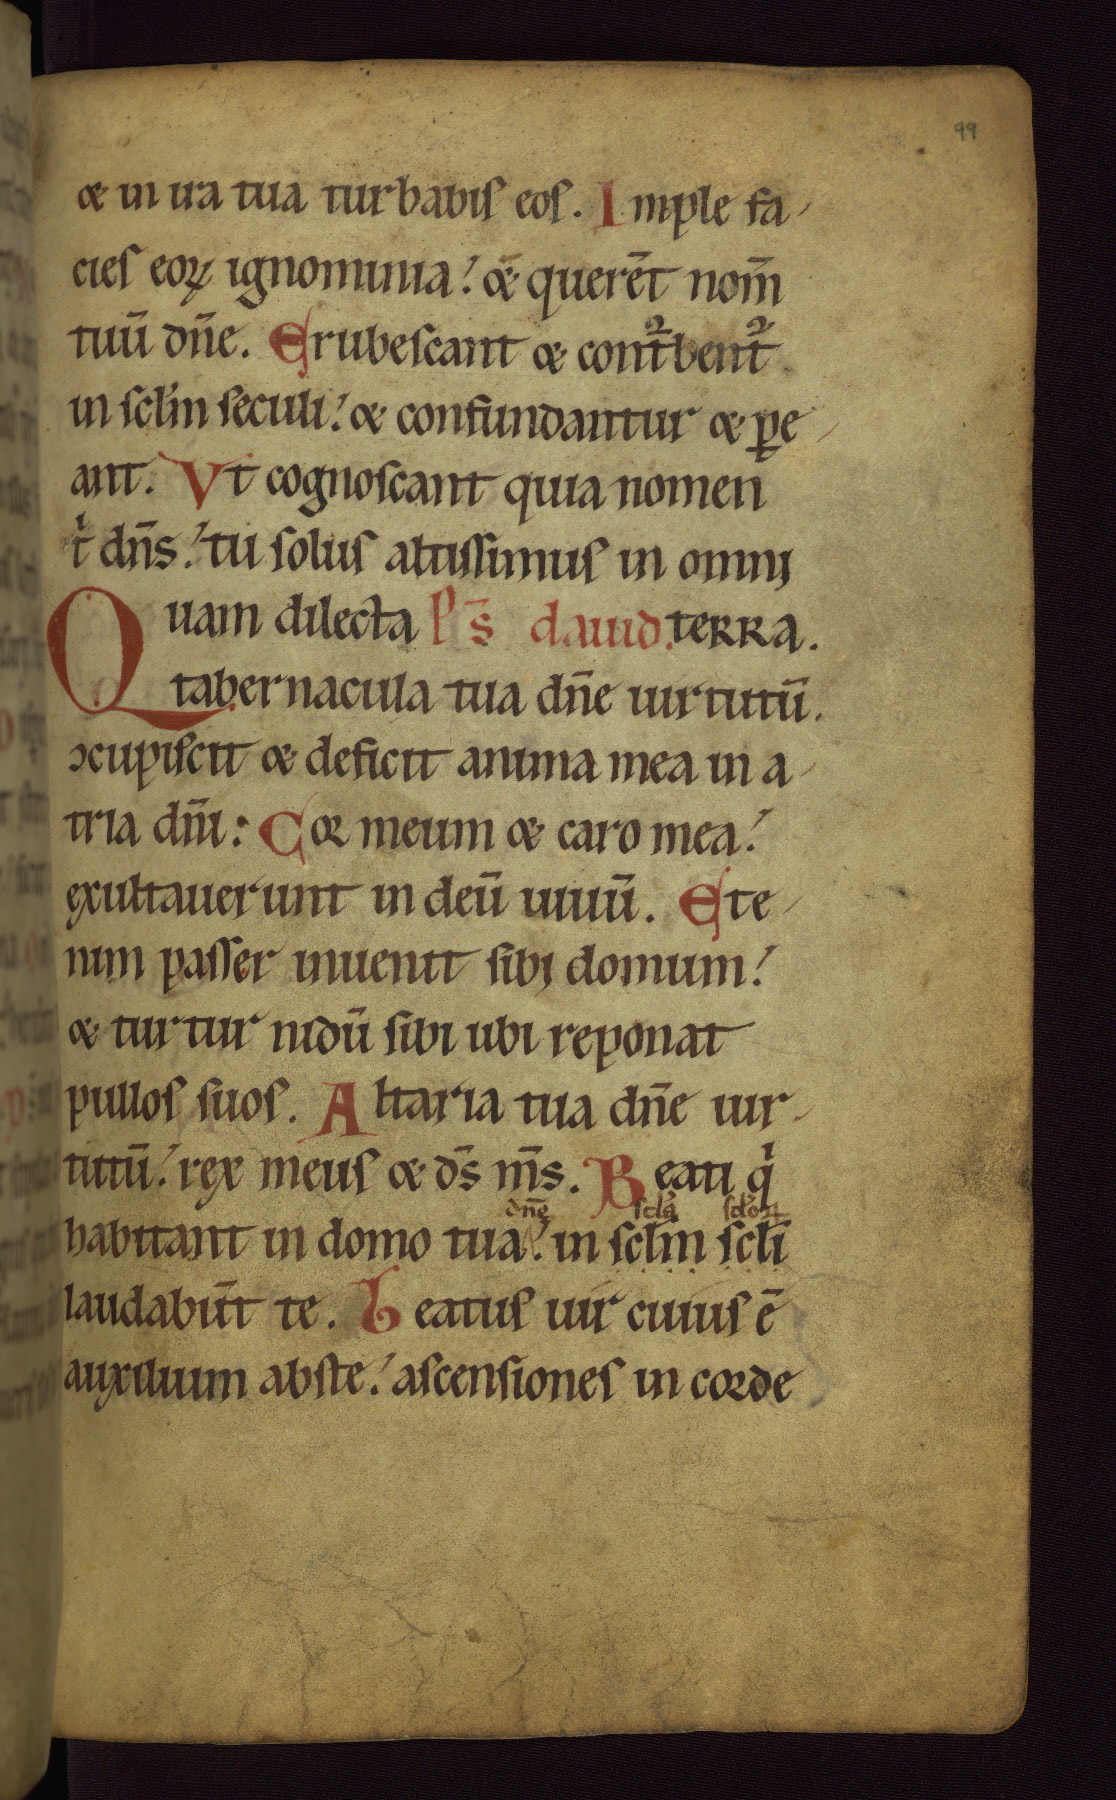 99
& in ira tua turbabis eos. Imple fa-
cies eoꝝ ignominia! & querēt nom̄
tuū dn̄e. Erubescant & cont̄bent᷑
in scl̄m seculi! & confundantur & ꝑe-
ant. Vt cognoscant quia nomen
tͥ dn̄s! tu solus altissimus in omni
Quam dilecta Ps̄ dauid. terra.
tabernacula tua dn̄e uirtutū.
ↄcupiscit & deficit anima mea in a-
tria dn̄i: Cor meum & caro mea!
exultauerunt in deū uiuū. Ete-
nim passer inuenit sibi domum!
& turtur nidū sibi ubi reponat
pullos suos. Altaria tua dn̄e uir-
tutū! rex meus & ds̄ ms̄. Beati qͥ
dn̄e scl̄a scl̄oꝝ
habitant in domo tua! in scl̄m scl̄i
laudabūt te. Beatus uir cuius ē
auxilium abste! ascensiones in corde